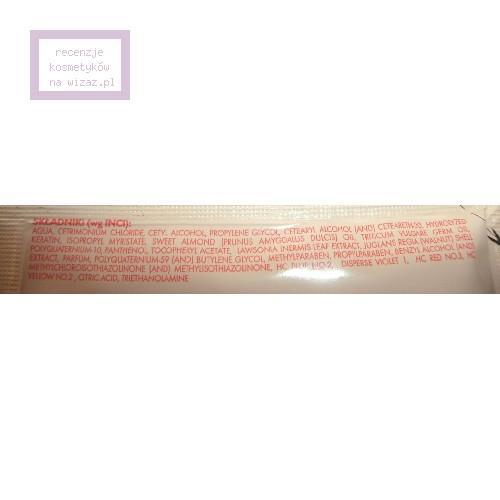 recenzje
kosmetyków
na wizaz.pl
SKŁADNIKI (wg INCI):
AQUA, CETRIMONIUM CHLORIDE, CETYL ALCOHOL, PROPYLENE GLYCOL, CETEARYL ALCOHOL (AND) CETEARETH-20, HYDROLYZED
KERATIN, ISOPROPYL MYRISTATE, SWEET ALMOND (PRUNUS AMYGDALUS DULCIS) OIL, TRITICUM VULGARE GERM OIL,
POLYQUATERNIUM-10, PANTHENOL, TOCOPHERYL ACETATE, LAWSONIA INERMIS LEAF EXTRACT, JUGLANS REGIA (WALNUT) SHELL
EXTRACT, PARFUM, POLYQUATERNIUM-59 (AND) BUTYLENE GLYCOL, METHYLPARABEN, PROPYLPARABEN, BENZYL ALCOHOL (AND)
METHYLCHLOROISOTHIAZOLINONE (AND) METHYLISOTHIAZOLINONE, HC BLUE NO.2, DISPERSE VIOLET 1, HC RED NO.3, HC
YELLOW NO.2, CITRIC ACID, TRIETHANOLAMINE